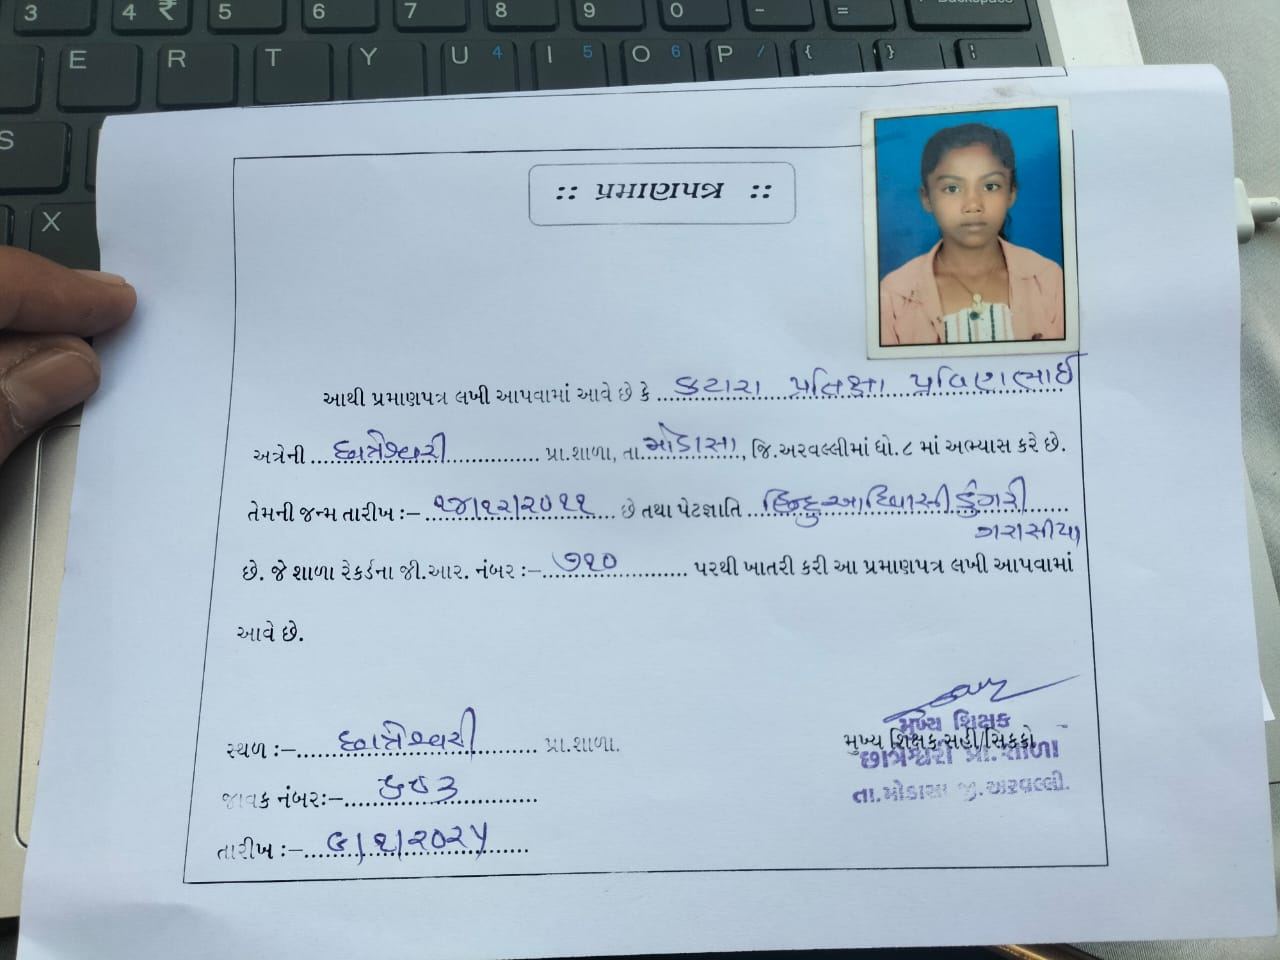 3 4 ₹ 5 6 7 8 9 0 - = Backspace
E R T Y U 4 I 5 O 6 P / { } ;
S
X
:: પ્રમાણપત્ર ::
આથી પ્રમાણપત્ર લખી આપવામાં આવે છે કે કટારા પ્રતિક્ષા પ્રવિણભાઈ
અત્રેની છાત્રેશ્વરી પ્રા.શાળા, તા. મોડાસા, જિ.અરવલ્લીમાં ધો.૮ માં અભ્યાસ કરે છે.
તેમની જન્મ તારીખ :– ૧૪/૧૨/૨૦૧૧ છે તથા પેટજ્ઞાતિ હિન્દુ આદિવાસી ડુંગરી
ગરાસીયા
છે. જે શાળા રેકર્ડના જી.આર. નંબર :– ૭૧૦ પરથી ખાતરી કરી આ પ્રમાણપત્ર લખી આપવામાં
આવે છે.
સ્થળ :– છાત્રેશ્વરી પ્રા.શાળા.
જાવક નંબર:–
તારીખ :– ૯/૧/૨૦૨૫
મુખ્ય શિક્ષક
મુખ્ય શિક્ષક સહી/સિકકો
છાત્રેશ્વરી પ્રા.શાળા
તા.મોડાસા જી.અરવલ્લી.